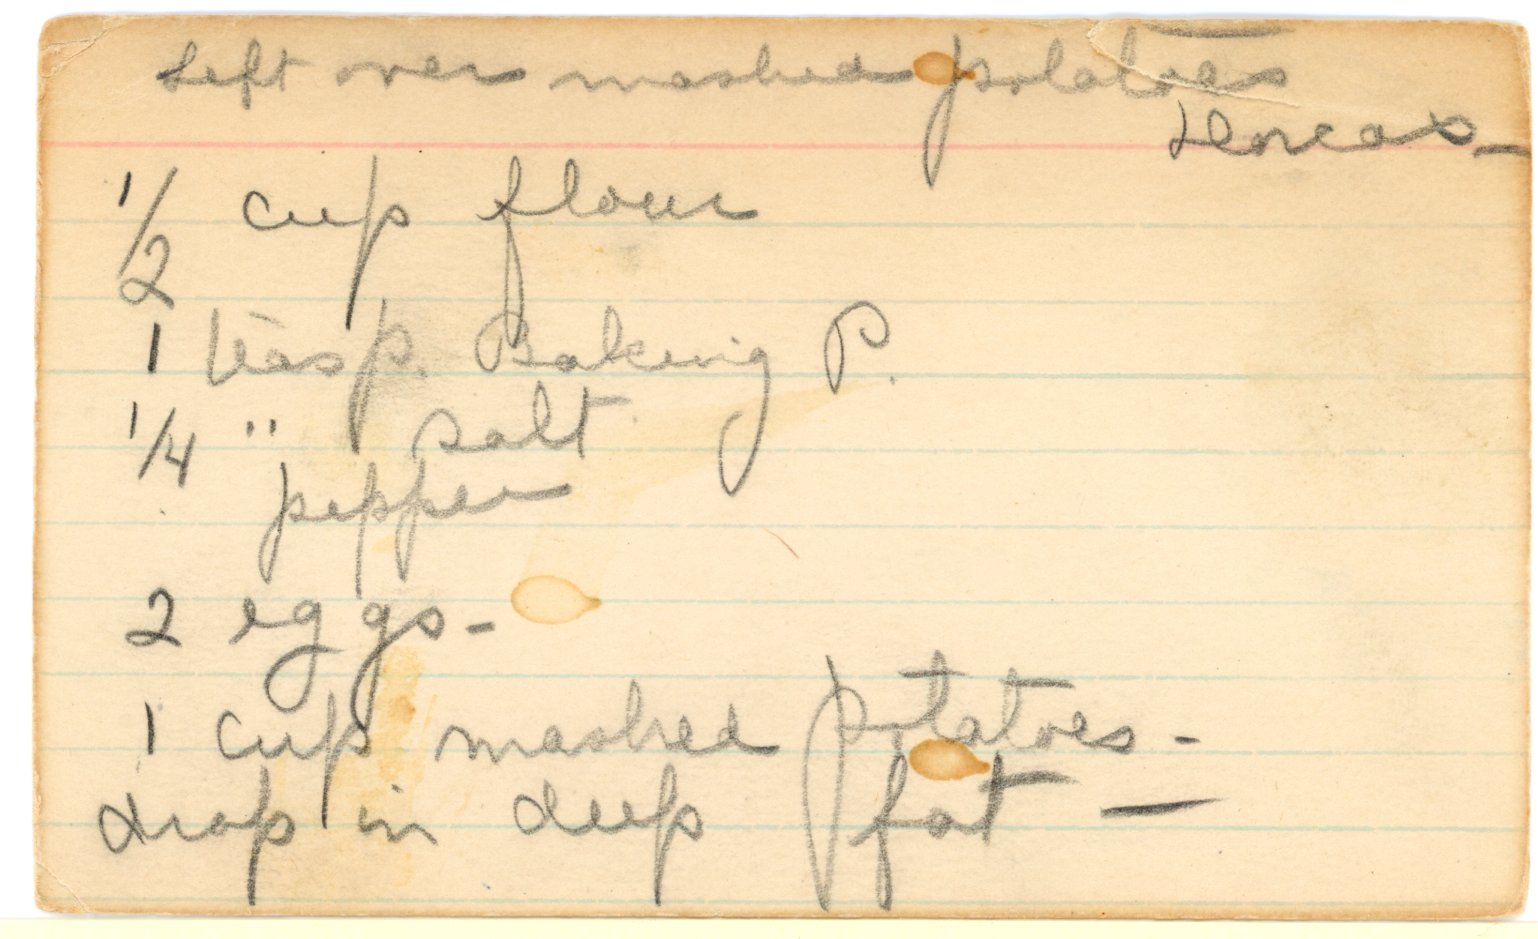 Left over mashed potatoes
Dorcas -
1/2 cup flour
1 teasp. Baking P.
1/4 " salt
pepper
2 eggs -
1 cup mashed potatoes -
drop in deep fat —